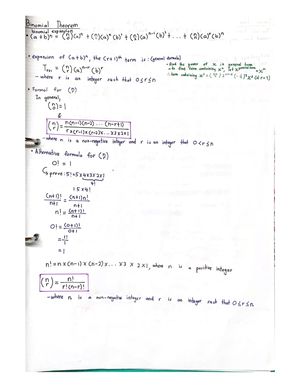 Binomial Theorem
binomial expansion
• (a+b)ⁿ = (n 0)(a)ⁿ + (n 1)(a)ⁿ⁻¹(b)¹ + (n 2)(a)ⁿ⁻²(b)² + ... + (n n)(a)⁰(b)ⁿ
• expansion of (a+b)ⁿ, the (r+1)ᵗʰ term is: (general formula)
Tᵣ₊₁ = (n r)(a)ⁿ⁻ʳ(b)ʳ
- where r is an integer such that 0≤r≤n
• find the power of x in general term
• Formula for (n r)
In general,
(n 0) = 1
&
(n r) = n(n-1)(n-2) ... (n-r+1) / r×(r-1)×(r-2)×...×3×2×1
- where n is a non-negative integer and r is an integer that 0<r≤n
• Alternative formula for (n r)
0! = 1
prove: 5! = 5×4×3×2×1
4!
= 5×4!
(n+1)!/n+1 = (n+1)n!/n+1
n! = (n+1)!/n+1
0! = (0+1)!/0+1
= 1!/1
= 1
n! = n×(n-1)×(n-2)×...×3×2×1, where n is a positive integer
(n r) = n!/r!(n-r)!
- where n is a non-negative integer and r is an integer such that 0≤r≤n